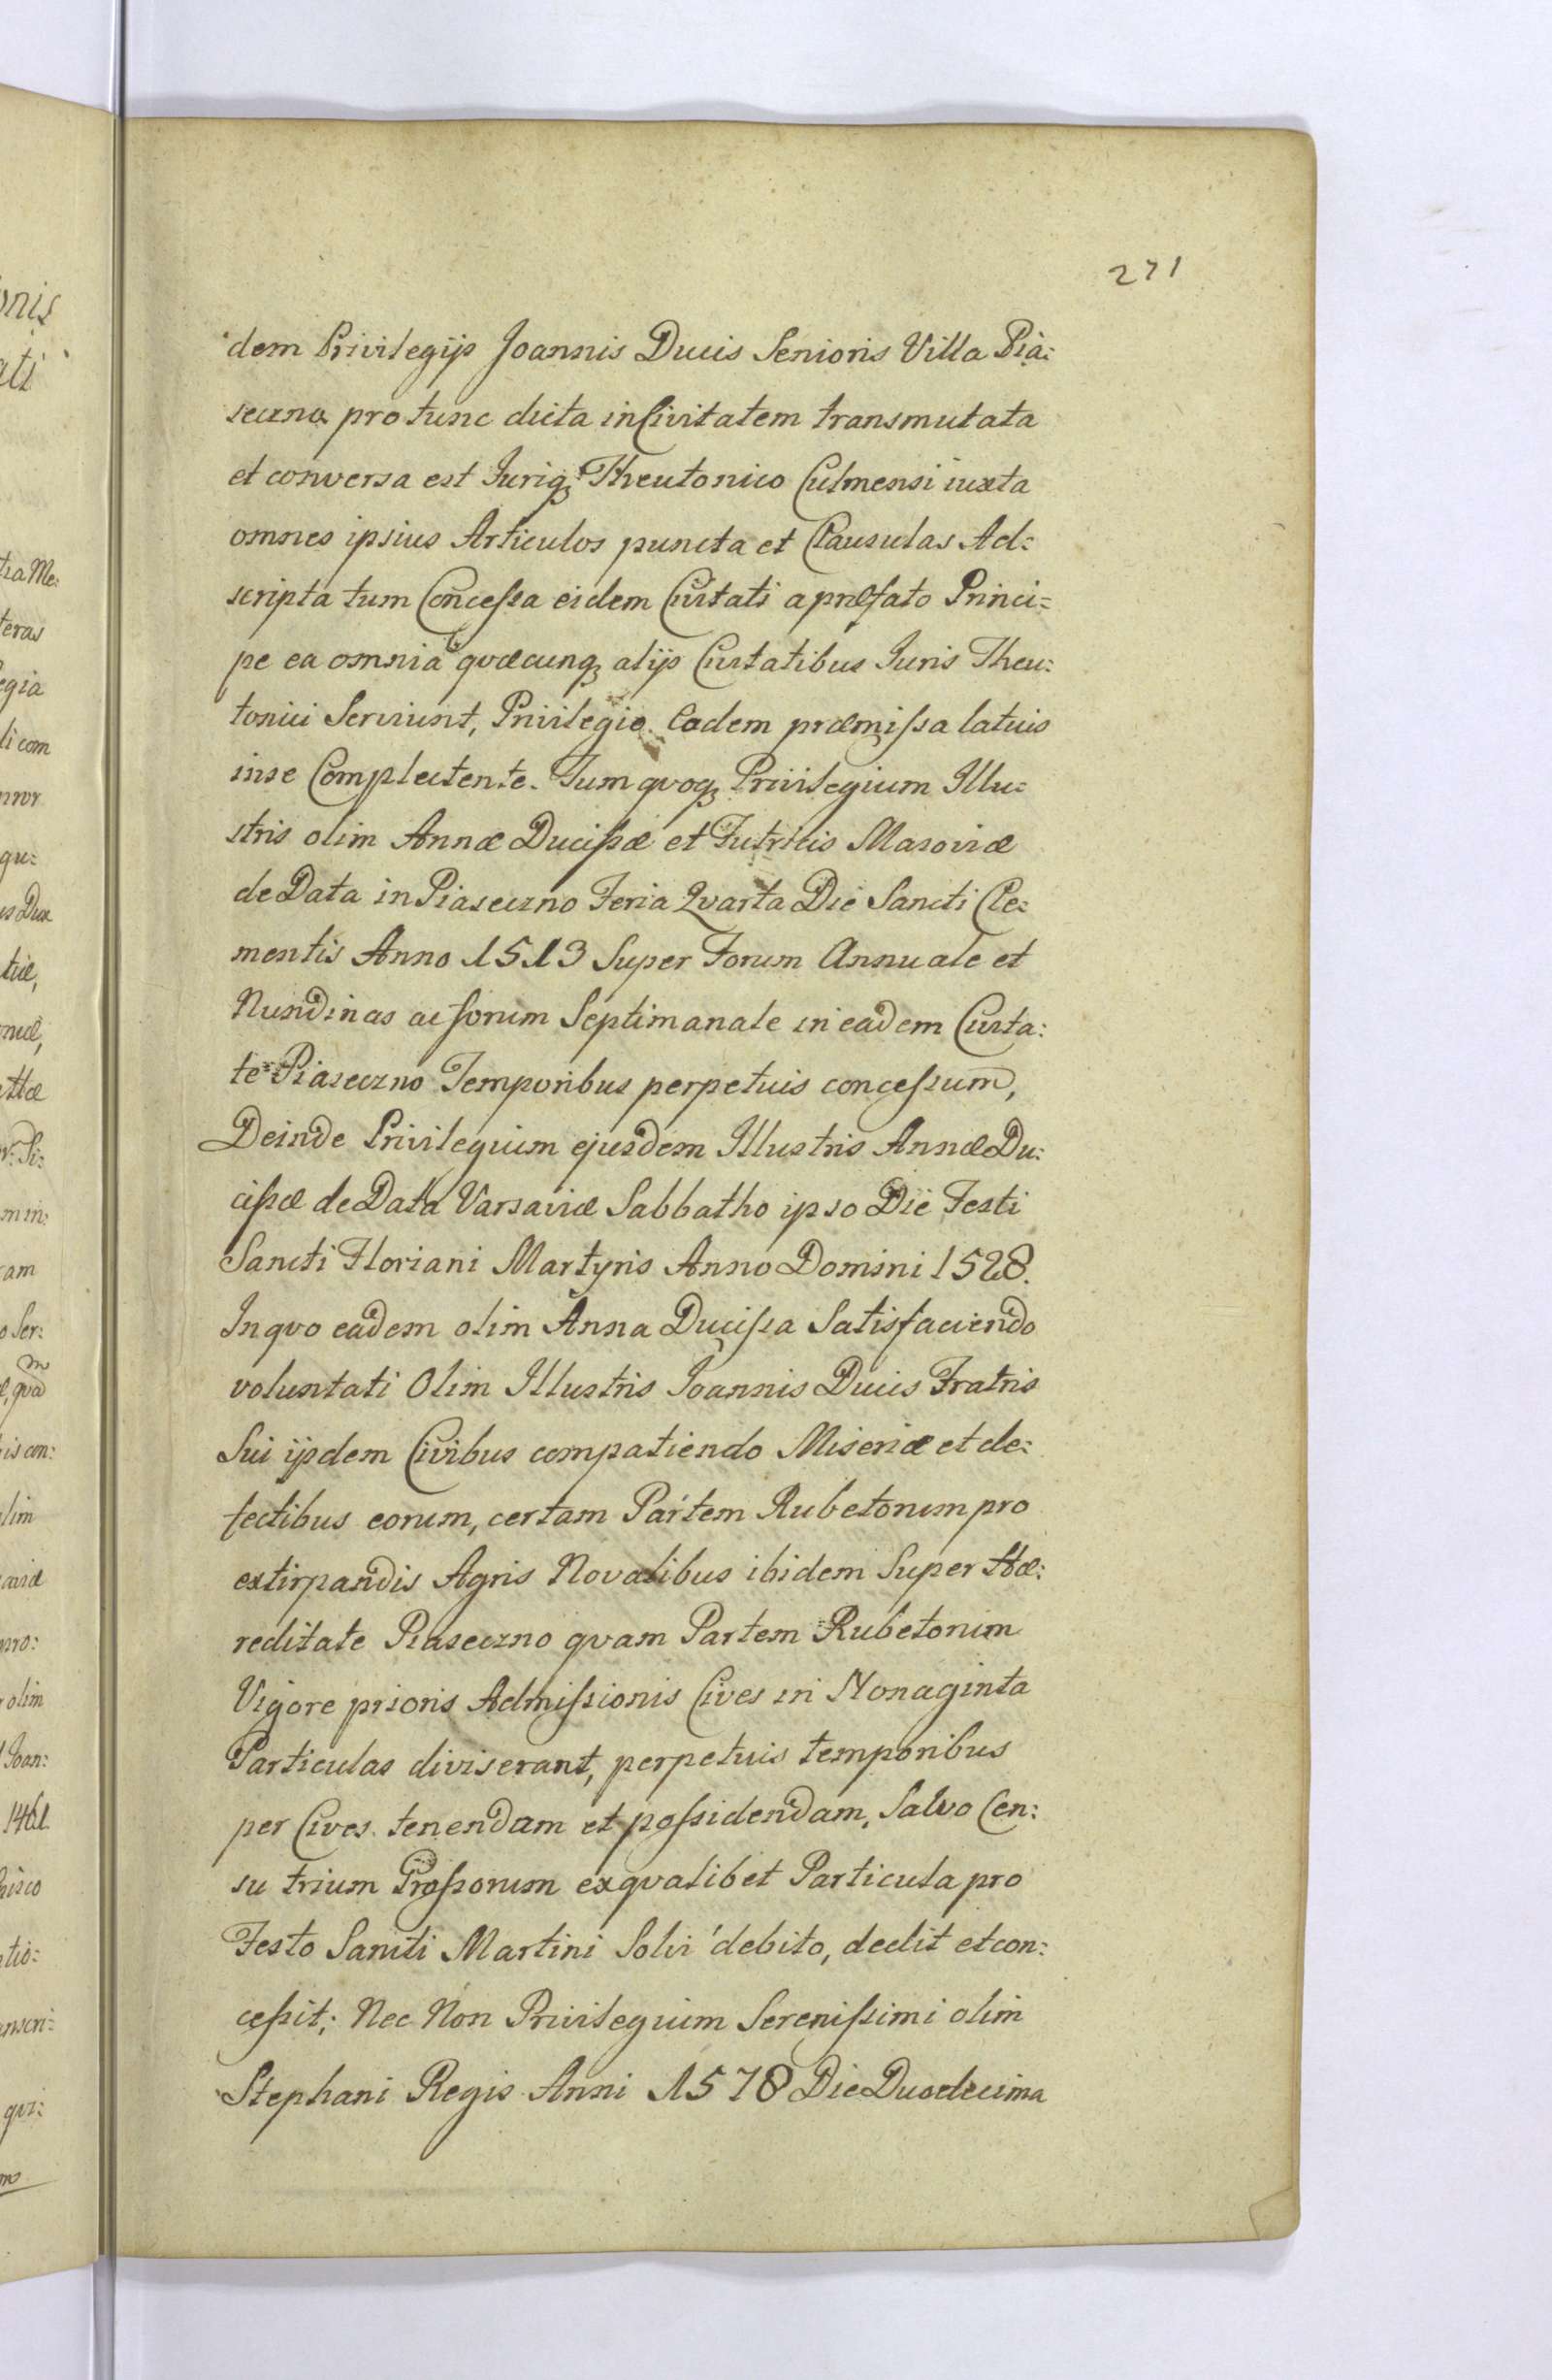 271
dem Privilegijs Joannis Ducis Senioris Villa Pia:
seczno pro tunc dicta in Civitatem transmutata
et conversa est Juriq; Theutonico Culmensi iuxta
omnes ipsius Articulos puncta et Clausulas Ad:
scripta tum Concessa eidem Civitati a præfato Princi=
pe ea omnia qvæcunq; alijs Civitatibus Juris Theu:
tonici Serviunt, Privilegio Eadem præmissa latius
in se Complectente. Tum qvoq; Privilegium Illu:
stris olim Annæ Ducissæ et Tutricis Masoviæ
de Data in Piaseczno Feria Qvarta Die Sancti Cle:
mentis Anno 1513 Super Forum Annuale et
Nundinas ac forum Septimanale in eadem Civita:
te Piaseczno Temporibus perpetuis concessum,
Deinde Privilegium ejusdem Illustris Annæ Du:
cissæ de Data Varsaviæ Sabbatho ipso Die Festi
Sancti Floriani Martyris Anno Domini 1528.
In qvo eadem olim Anna Ducissa Satisfaciendo
voluntati Olim Illustris Joannis Ducis Fratris
Sui ijsdem Civibus compatiendo Miseriæ et de:
fectibus eorum, certam Partem Rubetorum pro
extirpandis Agris Novalibus ibidem Super Hæ:
reditate Piaseczno qvam Partem Rubetorum
Vigore prioris Admissionis Cives in Nonaginta
Particulas diviserant, perpetuis temporibus
per Cives tenendam et possidendam, Salvo Cen:
su trium Grossorum ex qvalibet Particula pro
Festo Sancti Martini Solvi debito, dedit et con:
cessit; Nec Non Privilegium Serenissimi olim
Stephani Regis Anni 1578 Die Duodecima